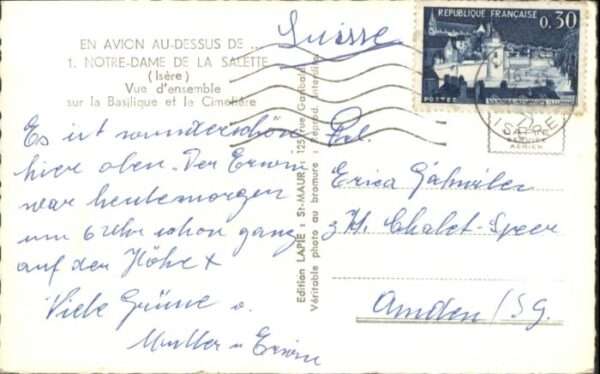 EN AVION AU-DESSUS DE ...
1. NOTRE-DAME DE LA SALETTE
(Isère)
Vue d'ensemble
sur la Basilique et le Cimetière
Es ist wunderschön
hier oben. Der Erwin
war heutemorgen
um 6 Uhr schon ganz
auf der Höhe
Viele Grüsse v.
Mutter u Erwin
Edition LAPIE : St-MAUR : 125, rue Garibaldi
Véritable photo au bromure : Reprod. Interdite
Suisse
REPUBLIQUE FRANÇAISE
0,30
POSTES
ISERE
Frl.
Erica
z. H. Chalet-Speer
Amden / SG.